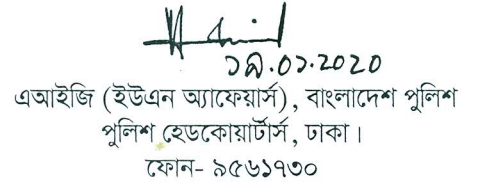 ১৯.০১.2020
এআইজি (ইউএন অ্যাফেয়ার্স), বাংলাদেশ পুলিশ
পুলিশ হেডকোয়ার্টার্স, ঢাকা।
ফোন- ৯৫৬১৭৩০